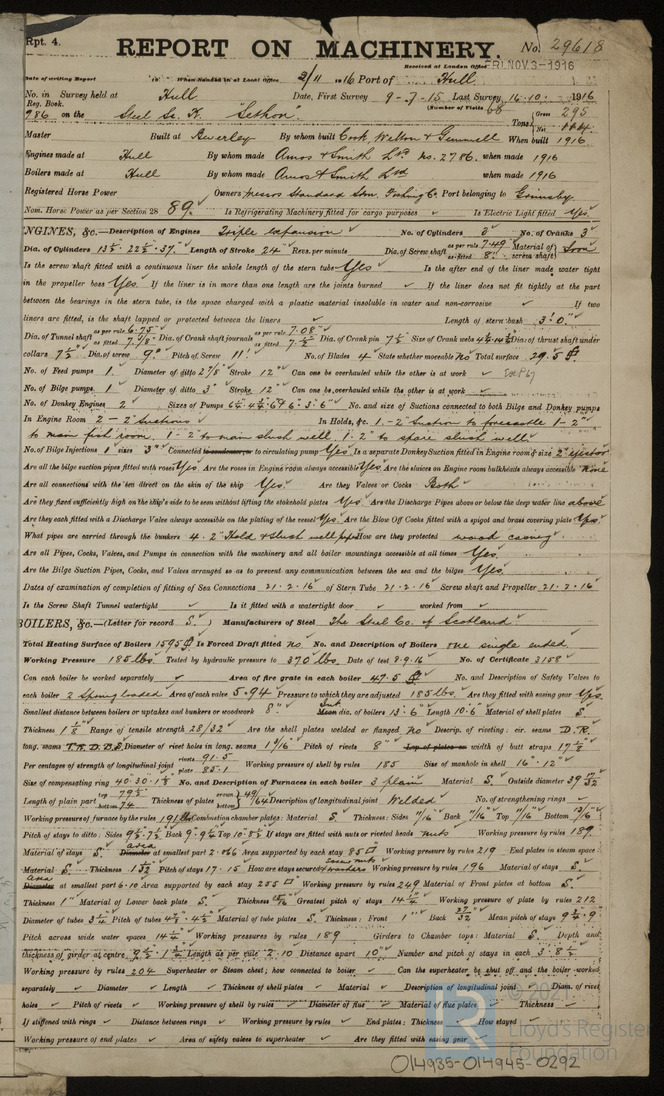 Rpt. 4.
REPORT ON MACHINERY. No. 29618
Received at London Office FRI. NOV. 3 - 1916
Date of writing Report 19 When handed in at Local Office 2/11 1916 Port of Hull
No. in Survey held at Hull Date, First Survey 9-7-15 Last Survey 16.10. 1916
Reg. Book. (Number of Visits 68
986 on the Steel Sc. K. "Sethon" Tons Gross 295 Net
Master Built at Beverley By whom built Cook, Welton & Gemmell When built 1916
Engines made at Hull By whom made Amos & Smith Ltd No. 2786. when made 1916
Boilers made at Hull By whom made Amos & Smith Ltd when made 1916
Registered Horse Power Owners Standard Stm. Fishing Co. Port belonging to Grimsby
Nom. Horse Power as per Section 28 89. Is Refrigerating Machinery fitted for cargo purposes Is Electric Light fitted Yes
ENGINES, &c.—Description of Engines Triple expansion No. of Cylinders 3 No. of Cranks 3
Dia. of Cylinders 13½" 22½" 37" Length of Stroke 24" Revs. per minute Dia. of Screw shaft as per rule 7.49 as fitted 8" Material of screw shaft Iron
Is the screw shaft fitted with a continuous liner the whole length of the stern tube Yes Is the after end of the liner made water tight
in the propeller boss Yes If the liner is in more than one length are the joints burned If the liner does not fit tightly at the part
between the bearings in the stern tube, is the space charged with a plastic material insoluble in water and non-corrosive If two
liners are fitted, is the shaft lapped or protected between the liners Length of stern bush 3'.0"
Dia. of Tunnel shaft as per rule 6.75" as fitted 7⅛" Dia. of Crank shaft journals as per rule 7.08" as fitted 7½" Dia. of Crank pin 7½" Size of Crank webs Dia. of thrust shaft under
collars 7½" Dia. of screw 9'.0" Pitch of Screw 11'. No. of Blades 4 State whether moveable No Total surface 29.5
No. of Feed pumps 1 Diameter of ditto 2⅞" Stroke 12" Can one be overhauled while the other is at work
No. of Bilge pumps 1 Diameter of ditto 3" Stroke 12" Can one be overhauled while the other is at work
No. of Donkey Engines 2 Sizes of Pumps No. and size of Suctions connected to both Bilge and Donkey pumps
In Engine Room 2 - 2" suctions In Holds, &c. 1 - 2" suction to forecastle 1 - 2"
to main fish room. 1 - 2" to main slush well. 1 - 2" to spare slush well.
No. of Bilge Injections 1 sizes 3" Connected to condenser, or to circulating pump Yes Is a separate Donkey Suction fitted in Engine room & size 2" ejector
Are all the bilge suction pipes fitted with roses Yes Are the roses in Engine room always accessible Yes Are the sluices on Engine room bulkheads always accessible None
Are all connections with the sea direct on the skin of the ship Yes. Are they Valves or Cocks Both
Are they fixed sufficiently high on the ship's side to be seen without lifting the stokehold plates Yes Are the Discharge Pipes above or below the deep water line above
Are they each fitted with a Discharge Valve always accessible on the plating of the vessel Yes Are the Blow Off Cocks fitted with a spigot and brass covering plate Yes
What pipes are carried through the bunkers 4 - 2" Hold & slush well pipes How are they protected wood casing
Are all Pipes, Cocks, Valves, and Pumps in connection with the machinery and all boiler mountings accessible at all times Yes.
Are the Bilge Suction Pipes, Cocks, and Valves arranged so as to prevent any communication between the sea and the bilges Yes
Dates of examination of completion of fitting of Sea Connections 21.2.16 of Stern Tube 21.2.16 Screw shaft and Propeller 21.2.16
Is the Screw Shaft Tunnel watertight Is it fitted with a watertight door worked from
BOILERS, &c.—(Letter for record S.) Manufacturers of Steel The Steel Co. of Scotland
Total Heating Surface of Boilers 1595 Is Forced Draft fitted No No. and Description of Boilers one single ended
Working Pressure 185 lbs. Tested by hydraulic pressure to 370 lbs. Date of test 8.9.16 No. of Certificate 3158
Can each boiler be worked separately Area of fire grate in each boiler 47.5 No. and Description of Safety Valves to
each boiler 2 Spring loaded Area of each valve 5.94 Pressure to which they are adjusted 185 lbs. Are they fitted with easing gear Yes
Smallest distance between boilers or uptakes and bunkers or woodwork 8" Mean dia. of boilers 13'.6" Length 10'.6" Material of shell plates S.
Thickness 1⅛" Range of tensile strength 28/32 Are the shell plates welded or flanged No Descrip. of riveting: cir. seams D.R.
long. seams T.R.D.B.S. Diameter of rivet holes in long. seams 1 3/16" Pitch of rivets 8" Lap of plates or width of butt straps 17⅛"
Per centages of strength of longitudinal joint rivets 91.5 plate 85.1 Working pressure of shell by rules 185 Size of manhole in shell 16" 12"
Size of compensating ring 40.30.1⅛ No. and Description of Furnaces in each boiler 3 plain Material S. Outside diameter
Length of plain part top 79.5 bottom 74 Thickness of plates crown bottom 49/64 Description of longitudinal joint Welded No. of strengthening rings
Working pressure of furnace by the rules 191 lbs Combustion chamber plates: Material S. Thickness: Sides 11/16" Back 11/16" Top 11/16" Bottom
Pitch of stays to ditto: Sides Back 9"·9¼" Top If stays are fitted with nuts or riveted heads nuts Working pressure by rules 189
Material of stays S. area Diameter at smallest part 2.066 Area supported by each stay 85 Working pressure by rules 219 End plates in steam space:
Material S. Thickness 1 1/32" Pitch of stays 17.15 How are stays secured Working pressure by rules 196 Material of stays S.
area Diameter at smallest part 6.10 Area supported by each stay 255 Working pressure by rules 249 Material of Front plates at bottom S.
Thickness 1" Material of Lower back plate S. Thickness Greatest pitch of stays 14¼ Working pressure of plate by rules 212
Diameter of tubes 3¼ Pitch of tubes Material of tube plates S. Thickness: Front 1" Back Mean pitch of stays
Pitch across wide water spaces 14¼" Working pressures by rules 189 Girders to Chamber tops: Material S. Depth and
thickness of girder at centre Length as per rule 2'.10 Distance apart 10" Number and pitch of stays in each 3 - 8½
Working pressure by rules 204 Superheater or Steam chest; how connected to boiler Can the superheater be shut off and the boiler worked
separately Diameter Length Thickness of shell plates Material Description of longitudinal joint Diam. of rivet
holes Pitch of rivets Working pressure of shell by rules Diameter of flue Material of flue plates Thickness
If stiffened with rings Distance between rings Working pressure by rules End plates: Thickness How stayed
Working pressure of end plates Area of safety valves to superheater Are they fitted with easing gear
© 2021
Lloyd's Register
Foundation
014935-014945-0292